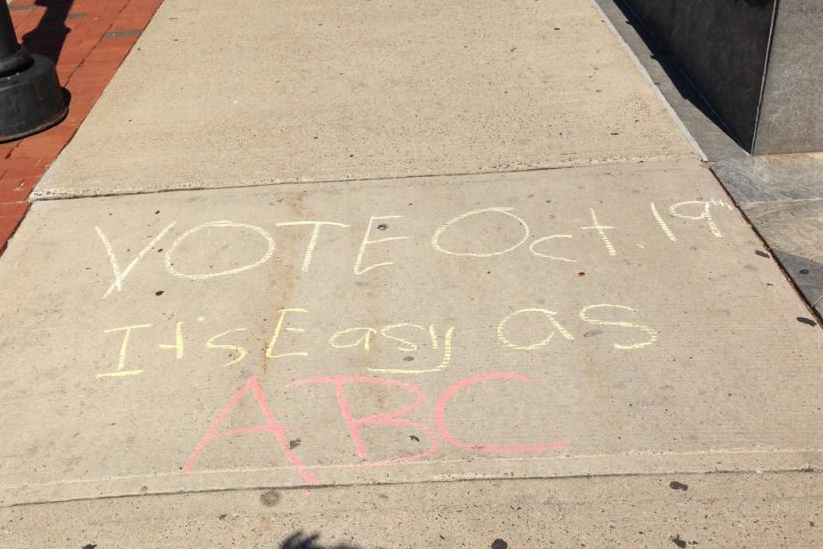 VOTE Oct. 19th
It's Easy as
ABC